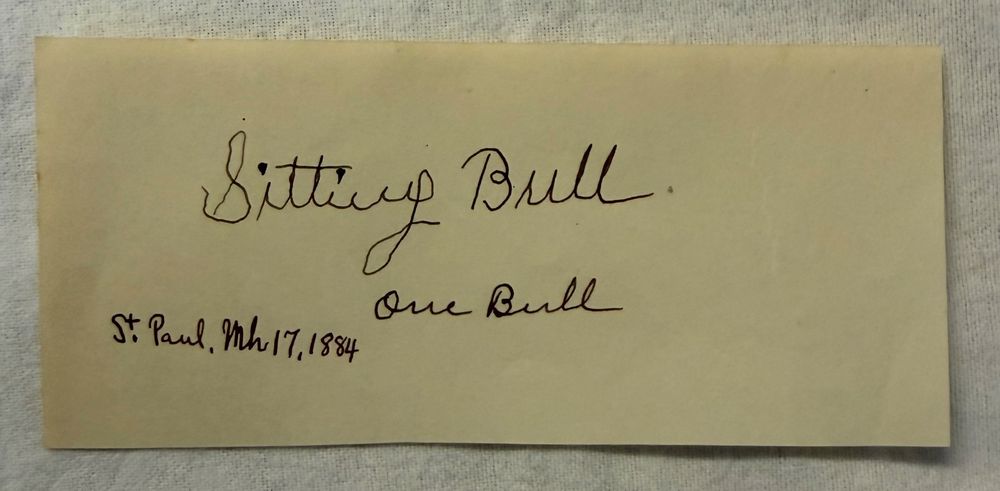 Sitting Bull
One Bull
St. Paul, Mh 17, 1884